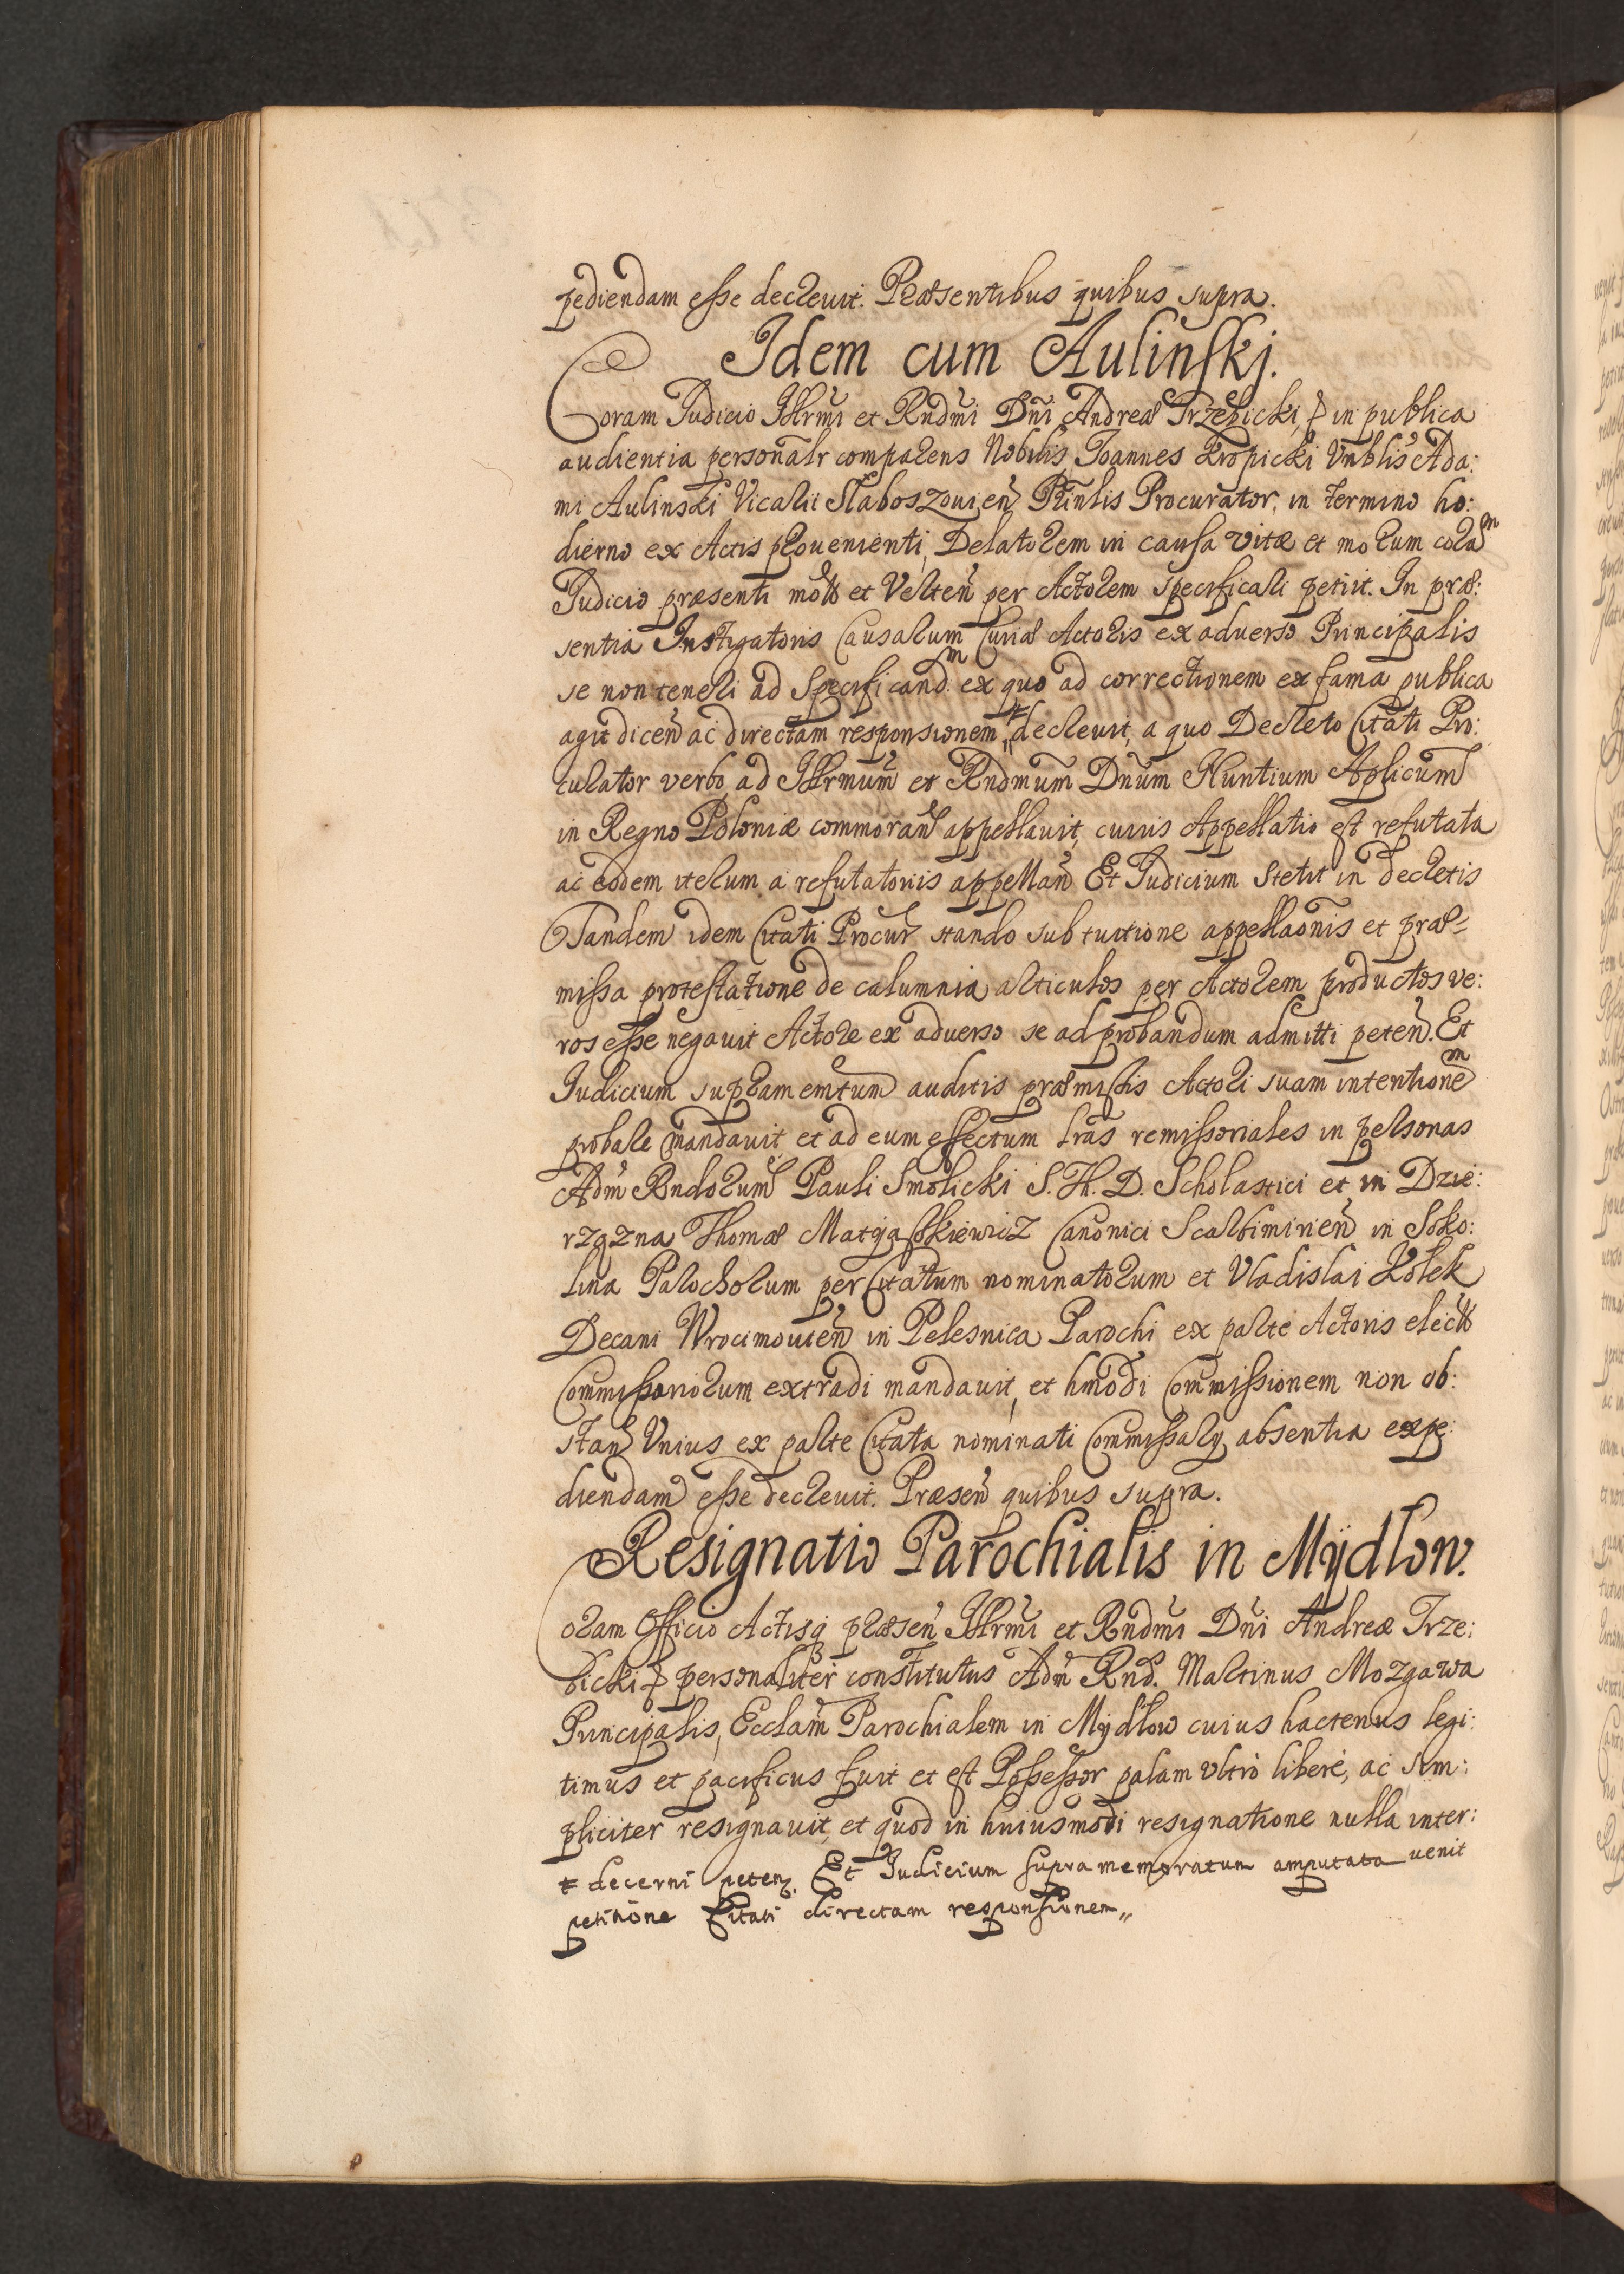 pediendam esse decreuit. Præsentibus quibus supra.
Idem cum Aulinskj.
Coram Judicio Illrmi et Rndmi Dni Andreæ Trzebicki, & in publica
audientia personalr comparens Nobilis Joannes Kropicki Vnblis Ada:
mi Aulinski Vicarii Slaboszouien Prinlis Procurator, in termino ho:
dierno ex Actis prouenienti, Delatorem in causa vitæ et morum cora͞m
Judicio præsenti et per Actorem specificari petiit. In præ:
sentia Instigatoris Causarum Curiæ Actoris ex aduerso Principalis
se non teneri ad specificand͞m ex quo ad correctionem ex fama publica
agit dicen ac directam responsionem ⹀ decreuit, a quo Decreto Citati Pro:
curator verbo ad Illrmum et Rndmum Dnum Nuntium Aplicum
in Regno Poloniæ commoran appellauit, cuius Appellatio est refutata
ac eodem iterum a refutatoriis appellan Et Judicium stetit in decretis
Tandem idem Citati Procur stando sub tuitione appellaonis et præ-
missa protestatione de calumnia articulos per Actorem productos ve:
ros esse negauit Actore ex aduerso se ad probandum admitti peten. Et
Judicium supramemtum auditis præmissis Actori suam intentione͞m
probare mandauit, et ad eum effectum lras remissoriales in personas
Adm Rndorum Pauli Smolicki S. Th. D. Scholastici et in Dzie:
rzązna Thomæ Matyaszkiewicz Canonici Scalbimirien in Soko:
lina Parochorum per Citatum nominatorum et Vladislai Kolek
Decani Wrocimouien in Pelesnica Parochi ex parte Actoris elect
Commissariorum extradi mandauit, et hmodi Commissionem non ob:
stan Vnius ex parte Citata nominati Commissarij absentia expe:
diendam esse decreuit. Præsen quibus supra.
Resignatio Parochialis in Mÿdlow.
Coram Officio Actisq præsen Illrmi et Rndmi Dni Andreæ Trze:
bicki & personaliter constitutus Adm Rnd. Martinus Mozgawa
Principalis, Ecclam Parochialem in Mÿdlow cuius hactenus legi:
timus et pacificus fuit et est Possessor palam vltro libere, ac sim:
pliciter resignauit, et quod in huiusmodi resignatione nulla inter:
venit
⹀ decerni peten. Et Judicium supra memoratum amputata
petitione Citati directam responsionem,,